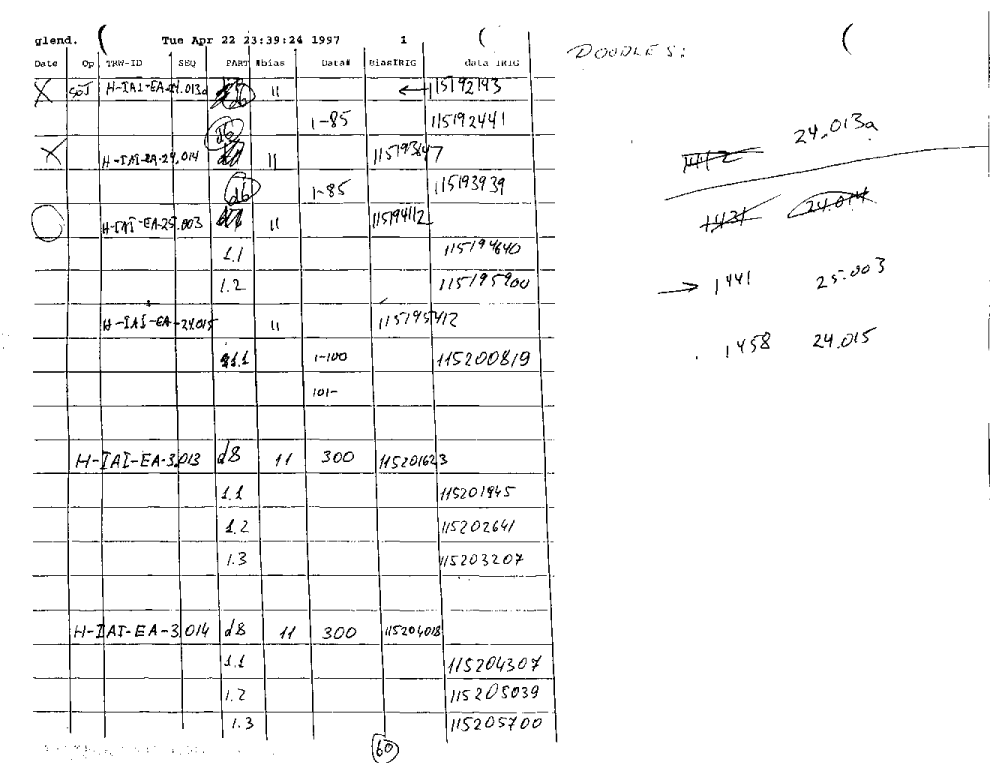 glend. ( Tue Apr 22 23:39:24 1997 1 (
Date Op TRW-ID SEQ PART #bias Data# BiasIRIG data IRIG
X SOJ H-IAI-EA-24.013a d6 11 ← 115192143
d6 1-85 115192441
X H-IAI-EA-24.014 11 115193647
d6 1-85 115193939
H-IAI-EA-25.003 11 115194112
1.1 115194640
1.2 115195900
H-IAI-EA-24.015 11 115195412
1.1 1-100 115200819
101-
H-IAI-EA-3.013 d8 11 300 115201623
1.1 115201945
1.2 115202641
1.3 115203207
H-IAI-EA-3.014 d8 11 300 115204018
1.1 115204307
1.2 115205039
1.3 115205700
60
DOODLES: (
24.013a
1431 24.014
→ 1441 25.003
1458 24.015